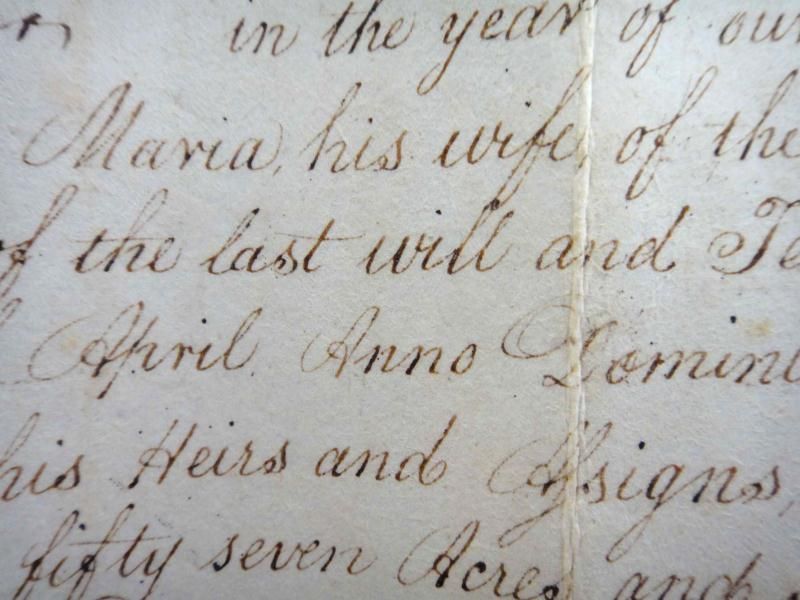 in the year of our
Maria, his wife, of the
of the last will and Te
April Anno Domini
his Heirs and Assigns,
fifty seven Acres and